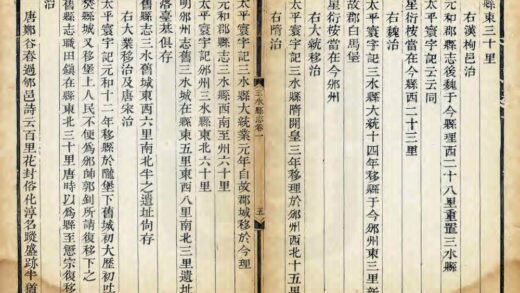 縣東三十里
右漢栒邑治
元和郡縣志後魏于今縣理西二十八里重置三水縣
星衍桉當在今縣西二十三里
太平寰宇記云云同
右魏治
太平寰宇記三水縣大統十四年移縣于今邠州東三里新
星衍桉當在今邠州
故郡白馬堡
右大統移治
太平寰宇記三水縣隋開皇三年移理於邠州西北十五里
右隋治
三水縣志卷一
五
太平寰宇記三水縣大統業元年自故郡城移於今理
元和郡縣志三水縣西南至州六十里
太平寰宇記邠州三水縣東北六十里
明邠州志舊三水城在縣東五里東西八里南北三里遺址
落臺基俱存
舊縣志三水舊城東西六里南北半之遺址尙存
右大業移治及唐宋治
太平寰宇記元和十二年移縣於隴堡下舊城初大歷初吐
樊縣城又移堡上人民不便爲邠帥郭釗所請復移下之
舊縣志職田鎮在縣東北三十里唐時以爲縣至懿宗復移
唐鄭谷春過郇邑詩云百里花封俗化淳名蹤盛跡半猶